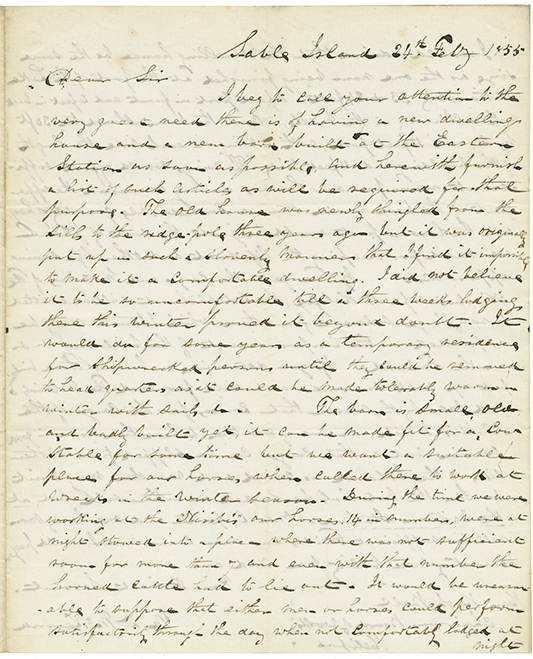 Sable Island 24th Feby 1855
Dear Sir
I beg to call your attention to the
very great need there is of having a new dwelling
house and a new barn built at the Eastern
Station as soon as possible and herewith furnish
a list of such articles as will be required for that
purpose. The old house was newly shingled from the
sills to the ridge pole three years ago but it was originally
put up in such a slovenly manner that I find it impossible
to make it a comfortable dwelling. I did not believe
it to be so uncomfortable till a three weeks lodging
there this winter proved it beyond doubt. It
would do for some years as a temporary residence
for shipwrecked persons until they could be removed
to head quarters as it could be made tolerably warm in
winter with sails &c. The barn is small, old
and badly built yet it can be made fit for a Cow
Stable for some time but we want a suitable
place for our horses when called there to work at
wrecks in the winter season. During the time we were
working at the Nisibis our horses, 14 in number, were at
night stowed into a place where there was not sufficient
room for more than 7 and even with that number the
horned cattle had to lie out. It would be unreason
-able to suppose that either men or horses could perform
satisfactorily through the day when not comfortably lodged at
night